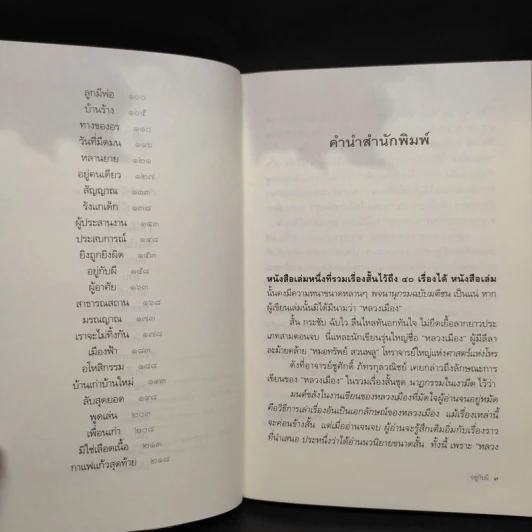 ลูกมีพ่อ ๑๐๐
บ้านร้าง ๑๐๕
ทางของอร ๑๑๐
วันที่มืดมน ๑๑๖
หลานยาย ๑๒๑
อยู่คนเดียว ๑๒๗
สัญญาณ ๑๓๓
รังแกเด็ก ๑๓๘
ผู้ประสานงาน ๑๔๓
ประสบการณ์ ๑๔๘
ยิงถูกยิงผิด ๑๕๓
อยู่กับผี ๑๕๘
ผู้อาศัย ๑๖๓
สาธารณสถาน ๑๖๘
มรณญาณ ๑๗๓
เราจะไม่ทิ้งกัน
เมืองฟ้า ๑๘๓
อโหสิกรรม ๑๘๘
บ้านเก่าบ้านใหม่
ลับสุดยอด
พูดเล่น ๒๐๓
เพื่อนเก่า ๒๐๘
มีใช่เลือดเนื้อ ๒๑๓
กาแฟแก้วสุดท้าย ๒๑๘
คำนำสำนักพิมพ์
หนังสือเล่มหนึ่งที่รวมเรื่องสั้นไว้ถึง ๔๐ เรื่องได้ หนังสือเล่ม
นั้นคงมีความหนาขนาดหลานๆ พจนานุกรมฉบับมติชน เป็นแน่ หาก
ผู้เขียนเล่มนั้นมิได้มีนามว่า "หลวงเมือง"
สั้น กระชับ ฉับไว ลื่นไหลทันอกทันใจ ไม่ยืดเยื้อลากยาวประ
เภทสามตอนจบ นี่แหละนักเขียนรุ่นใหญ่ชื่อ "หลวงเมือง" ผู้มีลีลา
ละม้ายคล้าย "หมอทรัพย์ สวนพลู" โหราจารย์ใหญ่แห่งศาสตร์แห่งโหร
ดังที่อาจารย์ชูศักดิ์ ภัทรกุลวณิชย์ เคยกล่าวถึงลักษณะการ
เขียนของ "หลวงเมือง" ในรวมเรื่องสั้นชุด นาฏกรรมในเงามืด ไว้ว่า
มนต์ขลังในงานเขียนของหลวงเมืองที่มัดใจผู้อ่านจนอยู่หมัด
คือวิธีการเล่าเรื่องอันเป็นเอกลักษณ์ของหลวงเมือง แม้เรื่องเหล่านี้
จะค่อนข้างสั้น แต่เมื่ออ่านจนจบ ผู้อ่านจะรู้สึกเต็มอิ่มกับเรื่องราว
ที่นำเสนอ ประหนึ่งว่าได้อ่านนวนิยายขนาดสั้น ทั้งนี้ เพราะ "หลวง
อยู่กับผี ๓